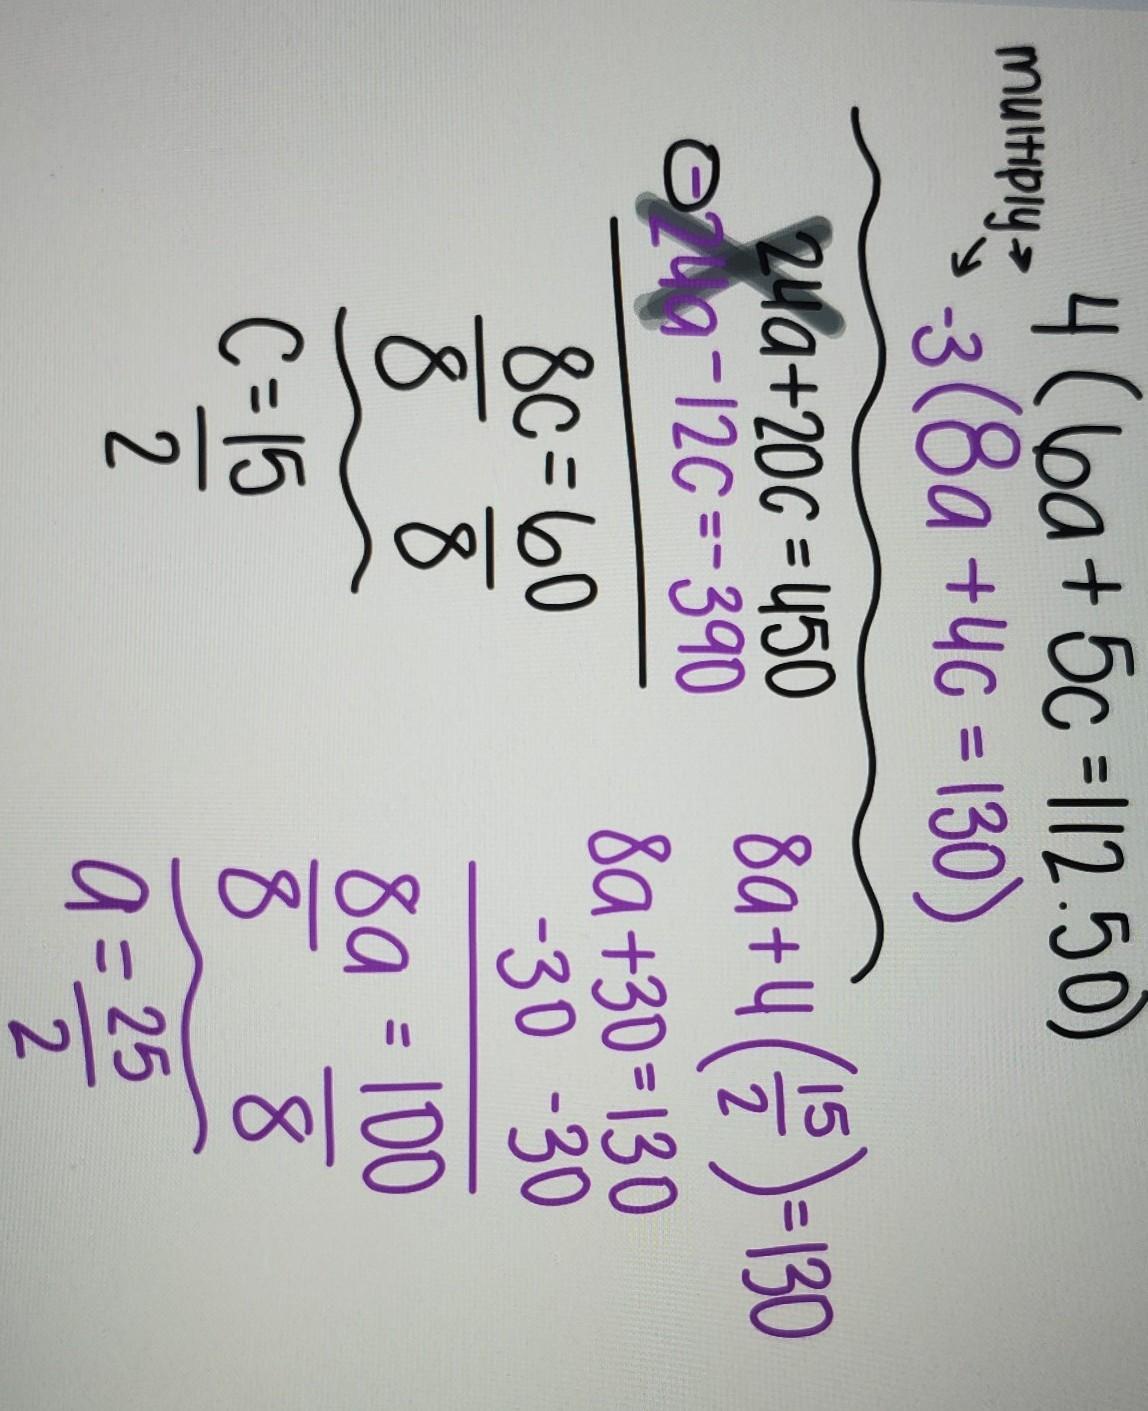 multiply
4 (6a + 5c = 112.50)
-3 (8a + 4c = 130)
24a + 20c = 450
-24a - 12c = -390
8c = 60
8 8
c = 15
2
8a + 4 (15/2) = 130
8a + 30 = 130
-30 -30
8a = 100
8 8
a = 25
2